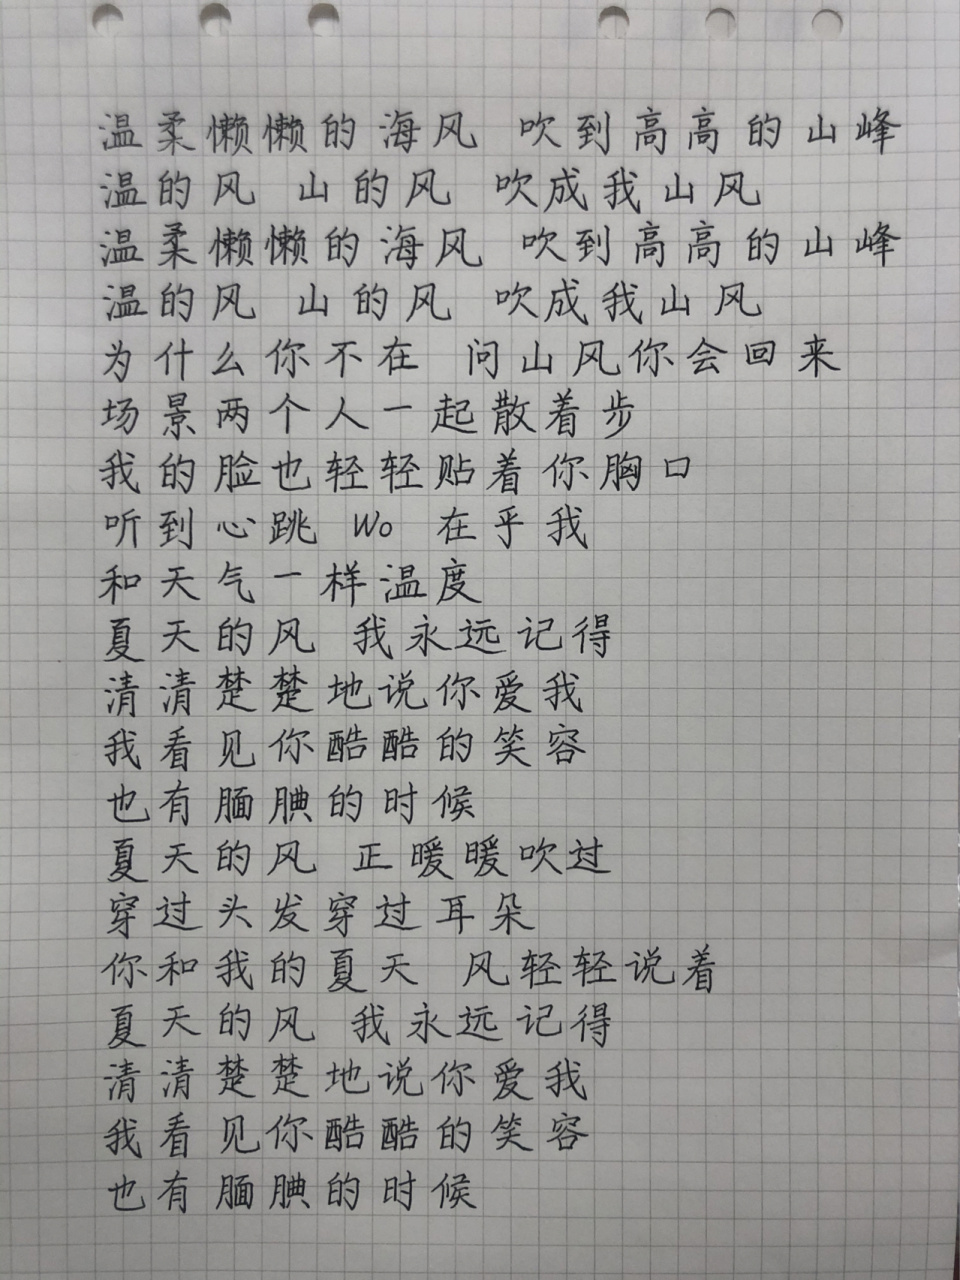 温柔懒懒的海风 吹到高高的山峰
温的风 山的风 吹成我山风
温柔懒懒的海风 吹到高高的山峰
温的风 山的风 吹成我山风
为什么你不在 问山风你会回来
场景两个人一起散着步
我的脸也轻轻贴着你胸口
听到心跳 Wo 在乎我
和天气一样温度
夏天的风 我永远记得
清清楚楚地说你爱我
我看见你酷酷的笑容
也有腼腆的时候
夏天的风 正暖暖吹过
穿过头发穿过耳朵
你和我的夏天 风轻轻说着
夏天的风 我永远记得
清清楚楚地说你爱我
我看见你酷酷的笑容
也有腼腆的时候